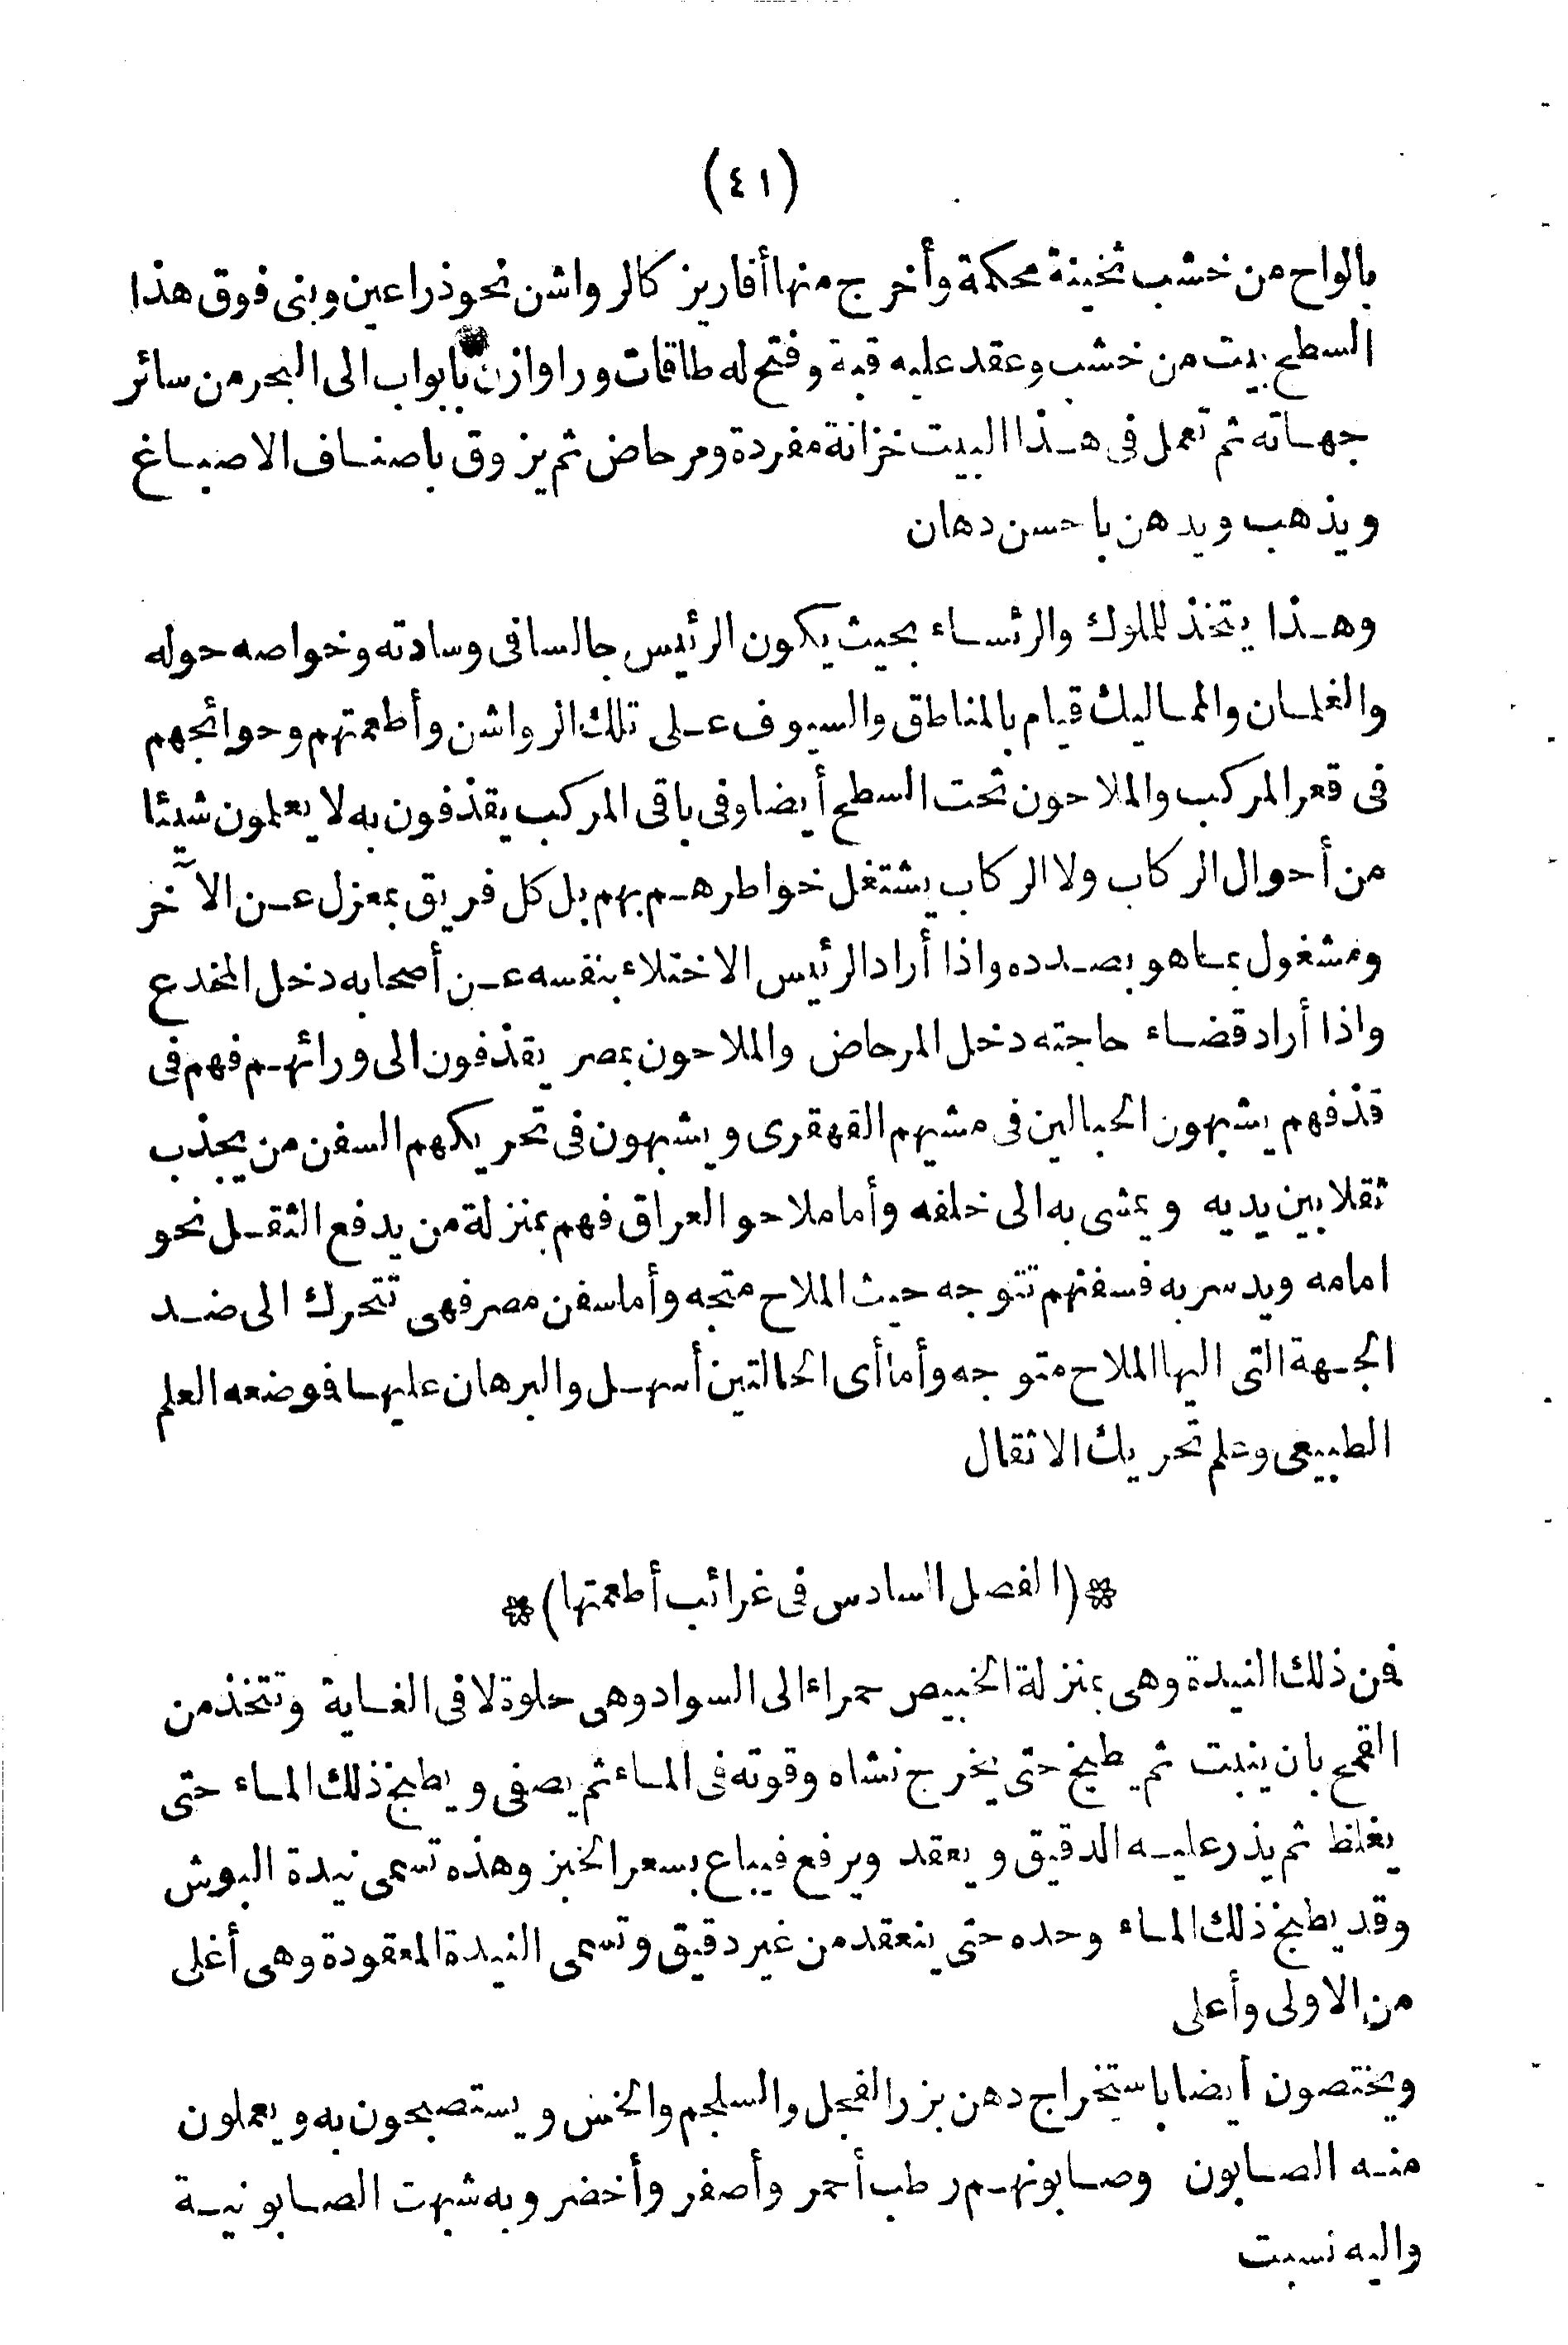 (٤١)
بالواح من خشب ثخينة محكمة وأخرج منها أفاريز كالرواشن نحو ذراعين وبنى فوق هذا
السطح بيت من خشب وعقد عليه قبة وفتح له طاقات وراوازن بابواب الى البحر من سائر
جهاته ثم تعمل فى هذا البيت خزانة مفردة ومرحاض ثم يزوق باصناف الاصباغ
ويذهب ويدهن باحسن دهان
وهذا يتخذ للملوك والرئساء بحيث يكون الرئيس جالسا فى وسادته وخواصه حوله
والغلمان والمماليك قيام بالمناطق والسيوف على تلك الرواشن وأطعمتهم وحوائجهم
فى قعر المركب والملاحون تحت السطح أيضا وفى باقى المركب يقذفون به لا يعلمون شيئا
من أحوال الركاب ولا الركاب يشتغل خواطرهم بهم بل كل فريق بمعزل عن الآخر
ومشغول بما هو بصدده واذا أراد الرئيس الاختلاء بنفسه عن أصحابه دخل المخدع
واذا أراد قضاء حاجته دخل المرحاض والملاحون بمصر يقذفون الى ورائهم فهم فى
قذفهم يشبهون الحبالين فى مشيهم القهقرى ويشبهون فى تحريكهم السفن من يجذب
ثقلا بين يديه ويمشى به الى خلفه وأما ملاحو العراق فهم بمنزلة من يدفع الثقل نحو
امامه ويدسر به فسفنهم تتوجه حيث الملاح متجه وأما سفن مصر فهى تتحرك الى ضد
الجهة التى اليها الملاح متوجه وأما أى الحالتين أسهل والبرهان عليها فوضعه العلم
الطبيعى وعلم تحريك الاثقال
* (الفصل السادس فى غرائب أطعمتها) *
فمن ذلك النيدة وهى بمنزلة الخبيص حمراء الى السواد وهى حلوة لا فى الغاية وتتخذ من
القمح بان ينبت ثم يطبخ حتى يخرج نشاه وقوته فى الماء ثم يصفى ويطبخ ذلك الماء حتى
يغلظ ثم يذر عليه الدقيق ويعقد ويرفع فيباع بسعر الخبز وهذه تسمى نيدة البوش
وقد يطبخ ذلك الماء وحده حتى ينعقد من غير دقيق وتسمى النيدة المعقودة وهى أغلى
من الاولى وأعلى
ويختصون أيضا باستخراج دهن بزر الفجل والسلجم والخس ويستصبحون به ويعملون
منه الصابون وصابونهم رطب أحمر وأصفر وأخضر وبه شبهت الصابونية
واليه نسبت